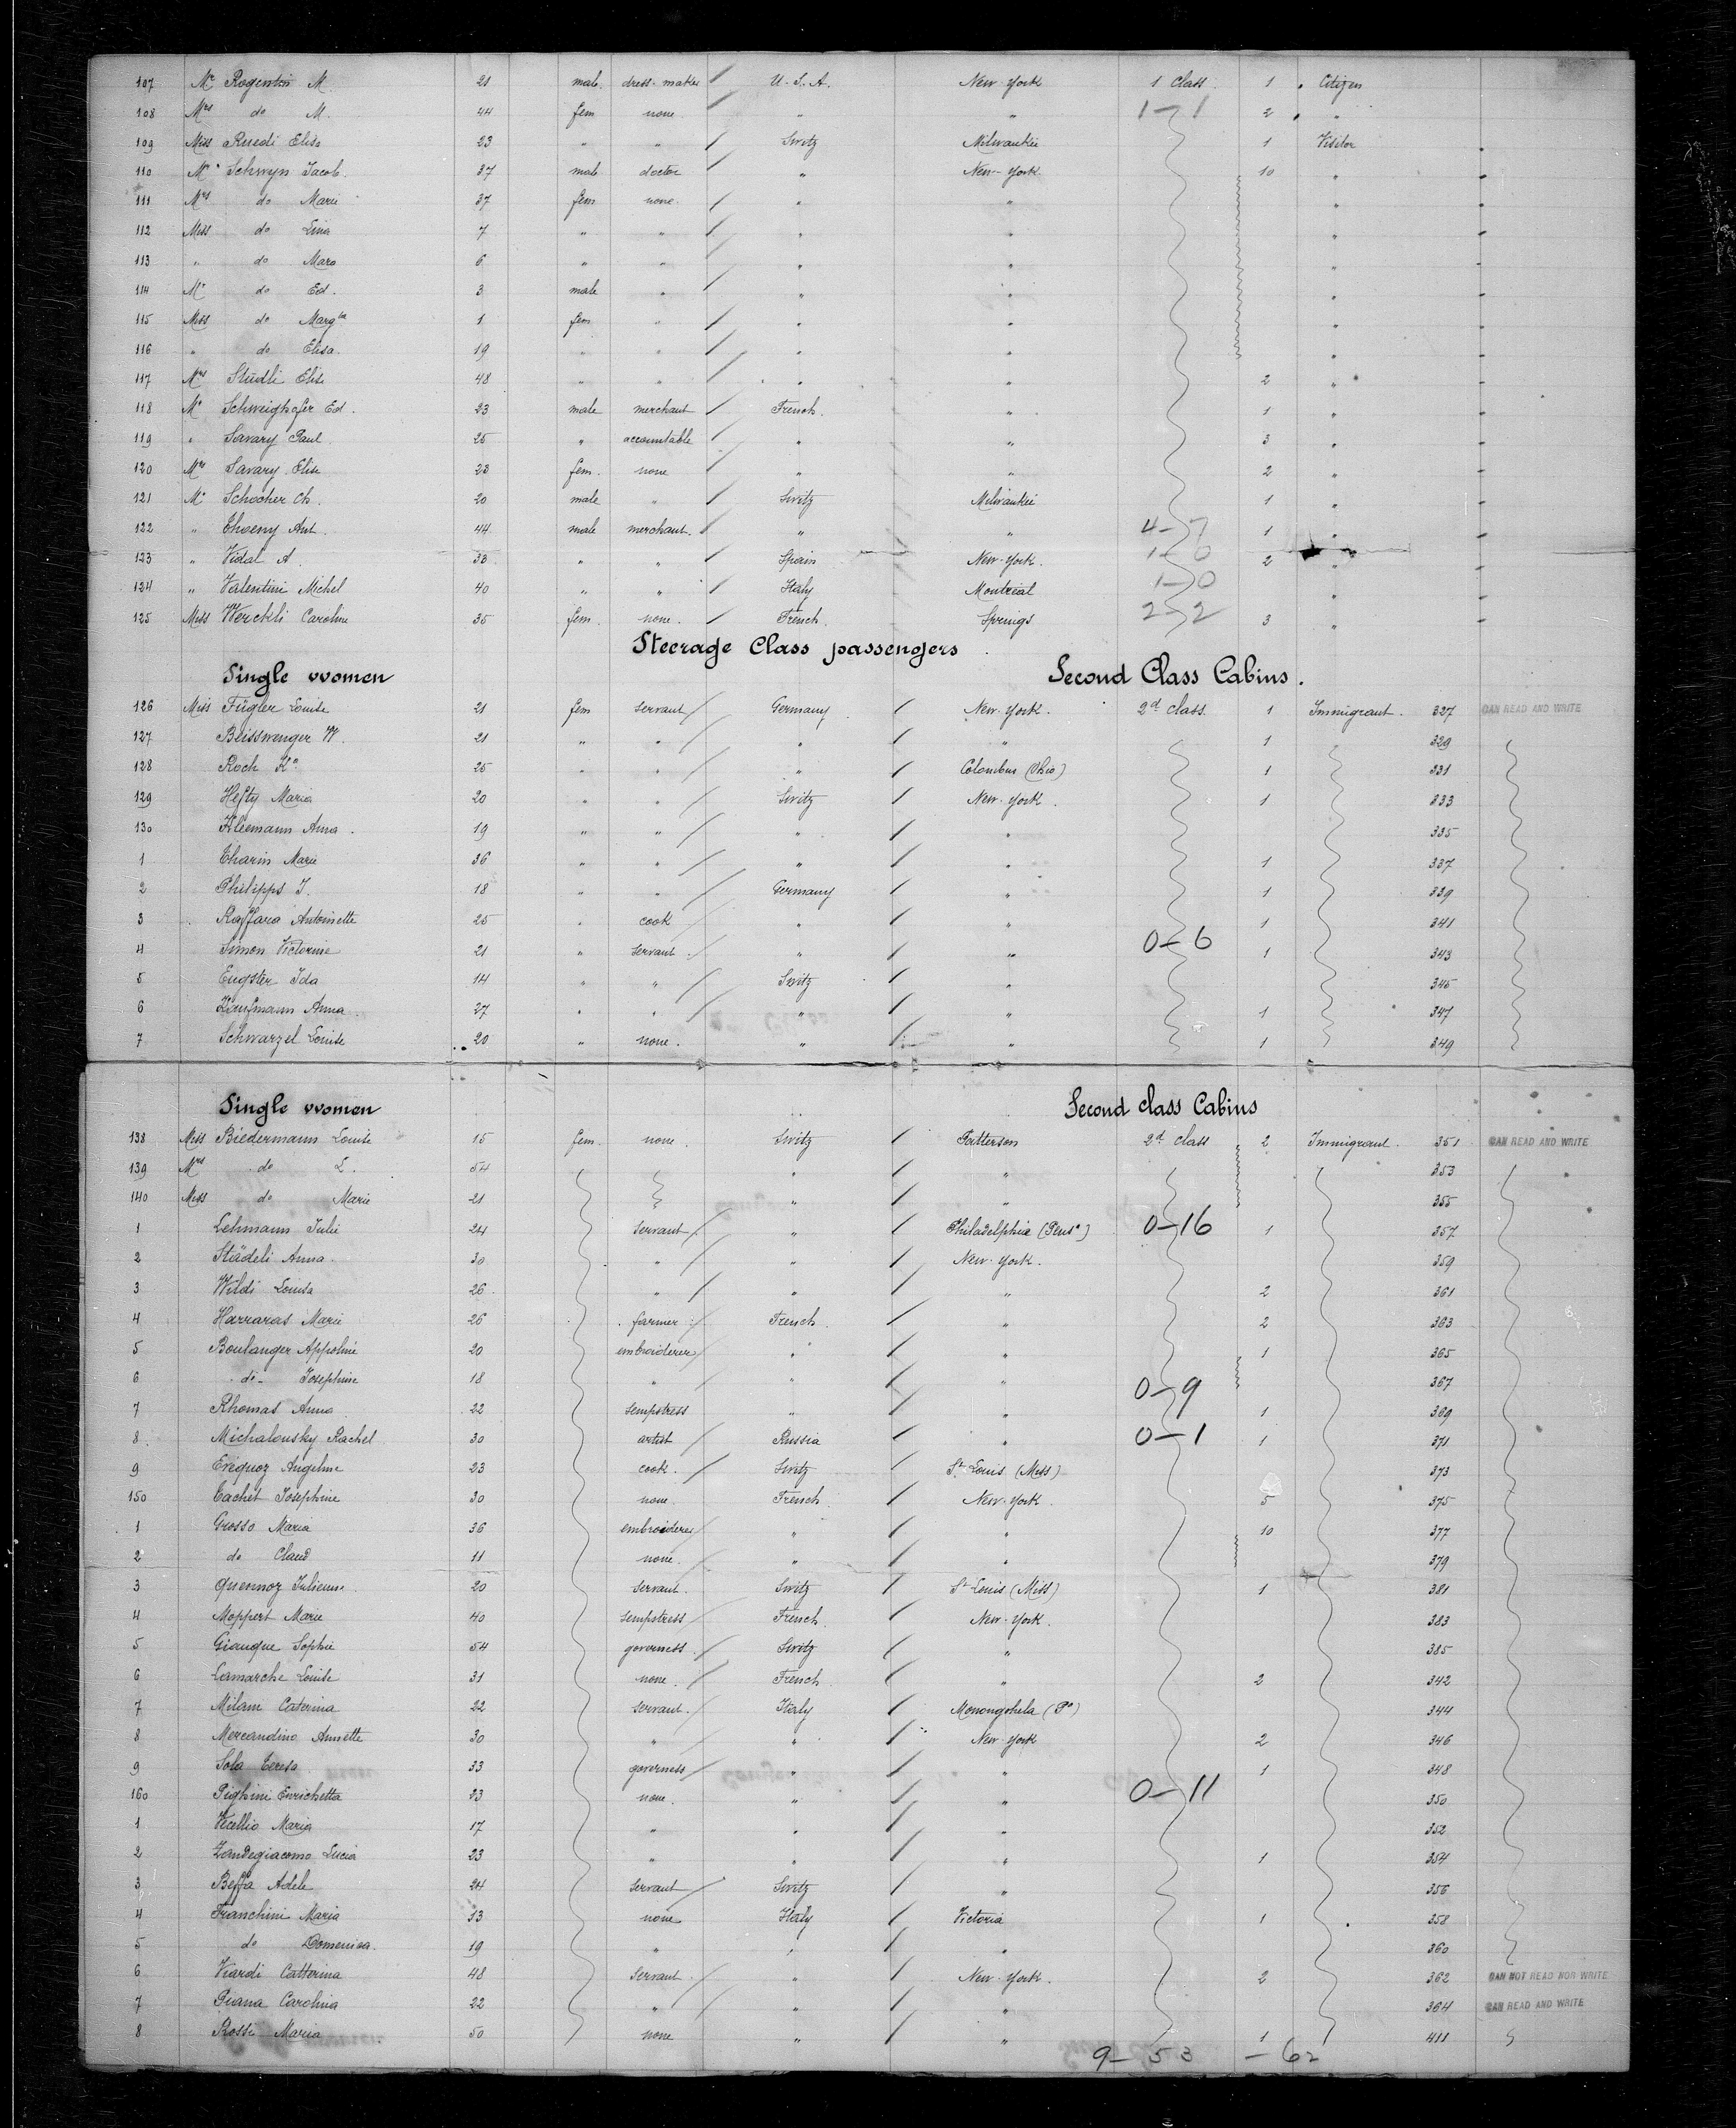 107 Mr Rogentin M. 21 male dress-maker U.S.A. New-York 1 Class 1 Citizen
108 Mrs do M. 44 fem none " " 1-1 2 "
109 Miss Ruedi Elisa 23 " " Switz Milwaukie 1 Visitor
110 Mr Schwyn Jacob. 37 male doctor " New-York 10 "
111 Mrs do Marie 37 fem none. " " "
112 Miss do Lina 7 " " " " "
113 " do Mara 6 " " " " "
114 Mr do Ed. 3 male " " " "
115 Miss do Margta 1 fem " " " "
116 " do Elisa. 19 " " " " "
117 Mrs Stüdli Elise 48 " " " " 2 "
118 Mr Schweighofer Ed. 23 male merchant French. " 1 "
119 " Savary Paul 25 " accountable " " 3 "
120 Mrs Savary Elise 23 fem. none " " 2 "
121 Mr Schocher Ch. 20 male " Switz Milwaukie 1 "
122 " Thoeny Ant. 44 male merchant. " " 4-7 1 "
123 " Vidal A. 38 " " Spain New-York. 1-0 2 "
124 " Valentini Michel 40 " " Italy Montreal 1-0 "
125 Miss Werckli Caroline 35 fem. none. French Springs 2-2 3 "
Steerage Class passengers
Single women Second Class Cabins.
126 Miss Fügler Louise 21 fem servant Germany New-York. 2d class. 1 Immigrant. 327 CAN READ AND WRITE
127 Beisswenger W. 21 " " " " 1 329
128 Roch Ka 25 " " " Colombus (Ohio) 1 331
129 Hefty Maria 20 " " Switz New-York. 1 333
130 Kleemann Anna. 19 " " " " 335
1 Tharin Marie 36 " " " " 1 337
2 Philipps J. 18 " " Germany " 1 339
3 Raffara Antoinette 25 " cook " " 1 341
4 Simon Victorine 21 " servant. " " 0-6 1 343
5 Eugster Ida 14 " " Switz " 345
6 Kaufmann Anna 27 " " " " 1 347
7 Schwarzel Louise 20 " none. " " 1 349
Single women Second class Cabins
138 Miss Biedermann Louise 15 fem. none. Switz Patterson 2d class 2 Immigrant. 351 CAN READ AND WRITE
139 Mrs do L. 54 " " 353
140 Miss do Marie 21 " " 355
1 Lehmann Julie 24 servant. " Philadelphia (Pensa) 0-16 1 357
2 Städeli Anna. 30 " " New-York. 359
3 Wildi Louisa 26 " " " 2 361
4 Harraras Marie 26 farmer French. " 2 363
5 Boulanger Appoline 20 embroiderer " " 1 365
6 do- Josephine 18 " " " 0-9 367
7 Rhomas Anna 22 sempstress " " 1 369
8 Michalousky Rachel 30 artist Russia " 0-1 1 371
9 Evéquoz Angeline 23 cook. Switz St Louis (Miss) 373
150 Cachet Josephine 30 none. French. New-York. 5 375
1 Grosso Maria 36 embroiderer " " 10 377
2 do Claud 11 none. " " 379
3 Quennoz Julienne. 20 servant. Switz St Louis (Miss) 1 381
4 Moppert Marie 40 sempstress French. New-York. 383
5 Gianque Sophie 54 governess. Switz " 385
6 Lamarche Louise 31 none. French. " 2 342
7 Milani Caterina 22 servant. Italy Monongohela (Pa) 344
8 Mercandino Annette 30 " " New-York 2 346
9 Sola Teresa 33 governess " " 1 348
160 Pighini Enrichetta 23 none. " " 0-11 350
1 Vecellio Maria 17 " " " 352
2 Zandegiacomo Lucia 23 " " " 1 354
3 Beffa Adele 24 servant Switz " 356
4 Franchini Maria 33 none Italy Victoria 1 358
5 do Domenica. 19 " " " 360
6 Viardi Catterina 48 Servant. " New-York. 2 362 CAN NOT READ NOR WRITE
7 Piana Carolina 22 " " " 364 CAN READ AND WRITE
8 Rossi Maria 50 none " " 1 411
9-53 -62